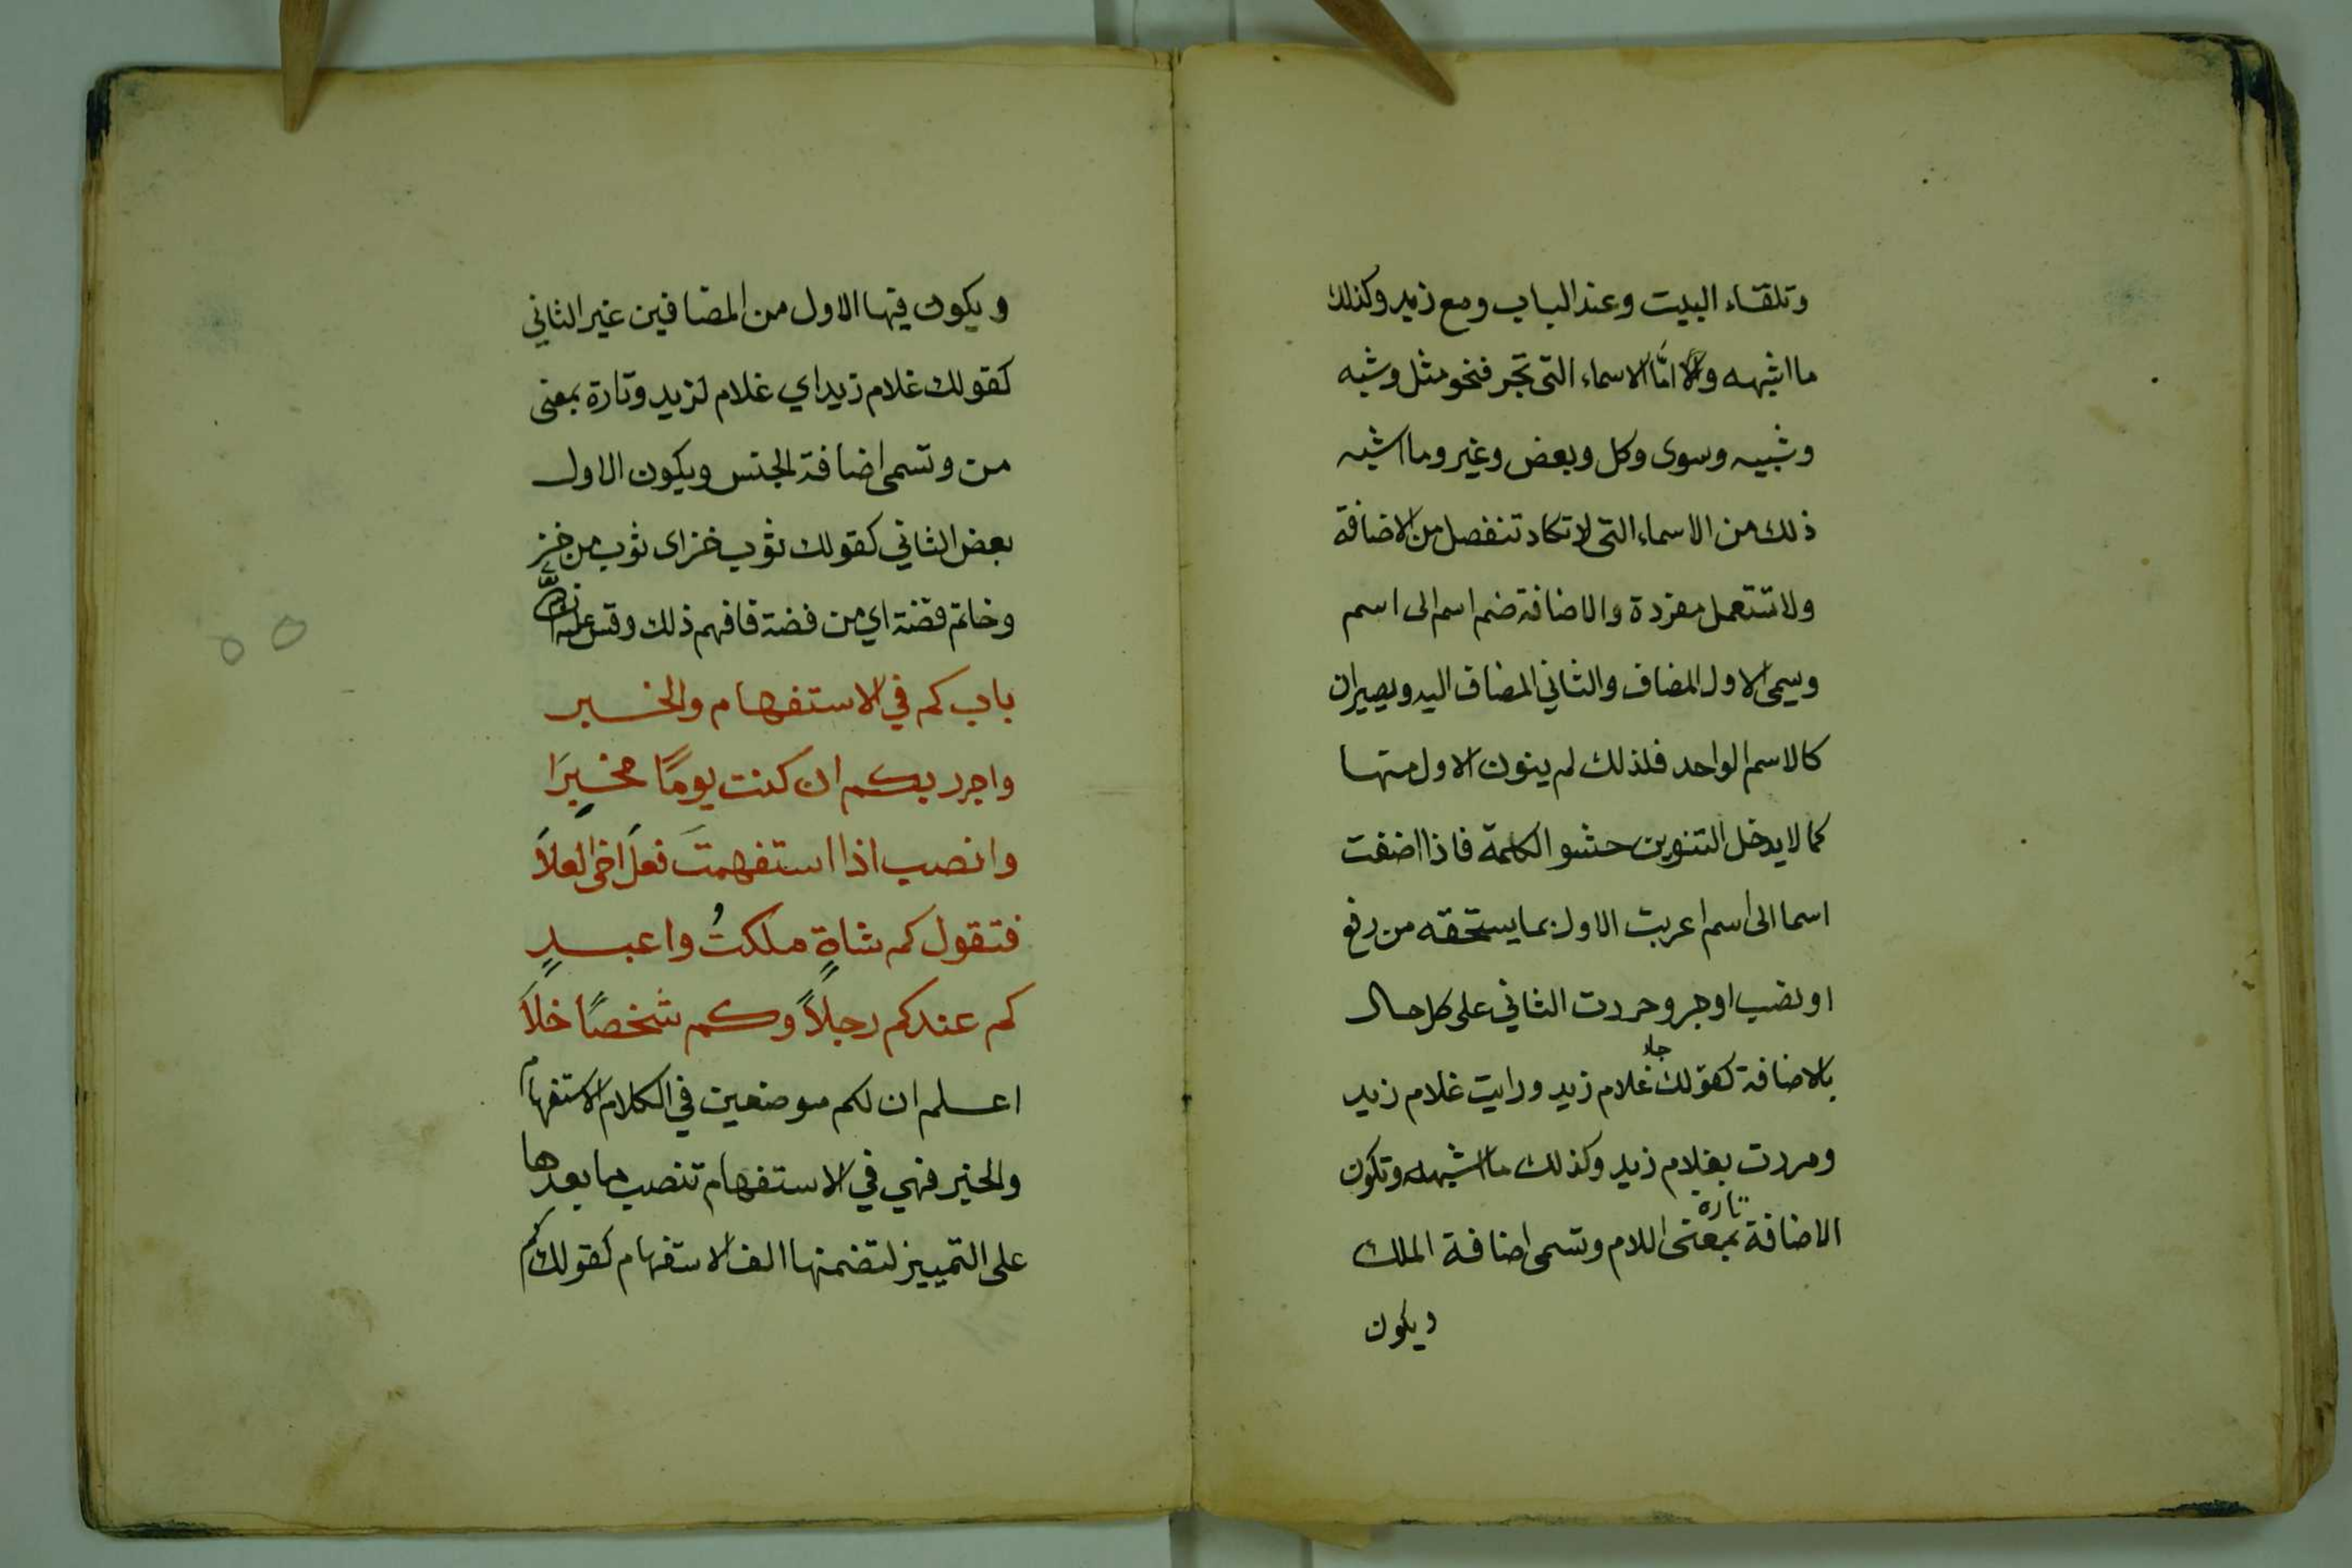 وتلقاء البيت وعند الباب ومع زيد وكذلك
ما اشبهه واما الاسماء التى تجر فنحو مثل وشبه
وشبيه وسوى وكل وبعض وغير وما اشبه
ذلك من الاسماء التى لا تكاد تنفصل من الاضافة
ولا تستعمل مفردة والاضافة ضم اسم الى اسم
ويسمى الاول المضاف والثاني المضاف اليه ويصيران
كالاسم الواحد فلذلك لم ينون الاول منهما
كما لا يدخل التنوين حشو الكلمة فاذا اضفت
اسما الى اسم اعربت الاول بما يستحقه من رفع
او نصب او جر وجررت الثاني على كل حال
بالاضافة كقولك جاء غلام زيد ورايت غلام زيد
ومررت بغلام زيد وكذلك ما اشبهه وتكون
الاضافة تارة بمعنى اللام وتسمى اضافة الملك
ويكون
ويكون فيها الاول من المضافين غير الثاني
كقولك غلام زيد اي غلام لزيد وتارة بمعنى
من وتسمى اضافة الجنس ويكون الاول
بعض الثاني كقولك ثوب خز اى ثوب من خز
وخاتم فضة اي من فضة فافهم ذلك وقس عليه
باب كم في الاستفهام والخبر
واجرر بكم ان كنت يومًا مخبِرَا
وانصب اذا استفهمتَ فعلَ اخى العلَا
فتقول كم شاةٍ ملكتُ واعبدٍ
كم عندكم رجلاً وكم شخصًا خلاَ
اعلم ان لكم موضعين في الكلام الاستفهام
والخبر فهي في الاستفهام تنصب ما بعدها
على التمييز لتضمنها الف الاستفهام كقولك كم